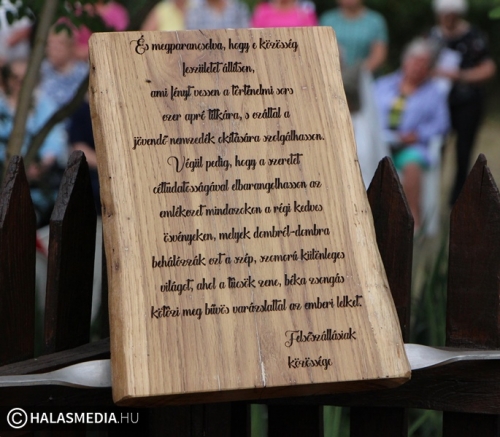 És megparancsolva, hogy e közösség
feszületet állítsen,
ami fényt vessen a történelmi sors
ezer apró titkára, s ezáltal a
jövendő nemzedék okítására szolgálhasson.
Végül pedig, hogy a szeretet
céltudatosságával elbarangolhasson az
emlékezet mindazokon a régi kedves
ösvényeken, melyek dombról-dombra
behálózzák ezt a szép, szomorú különleges
világot, ahol a tücsök zene, béka zsongás
kötözi meg bűvös varázslattal az emberi lelket.
Felsőszállásiak
közössége
© HALASMEDIA.HU